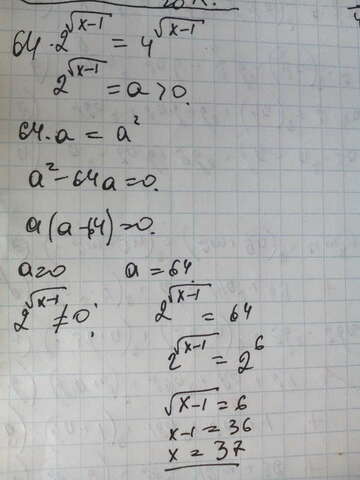 64·2^√(x-1) = 4^√(x-1)
2^√(x-1) = a > 0.
64·a = a²
a² - 64a = 0.
a(a-64) = 0.
a = 0 a = 64.
2^√(x-1) ≠ 0; 2^√(x-1) = 64
2^√(x-1) = 2⁶
√(x-1) = 6
x-1 = 36
x = 37